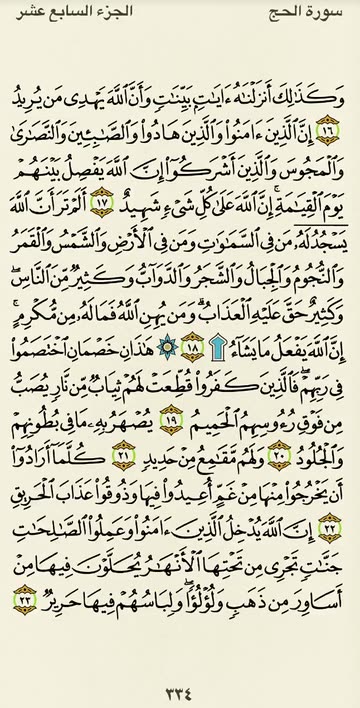 سورة الحج الجزء السابع عشر
وَكَذَٰلِكَ أَنزَلْنَٰهُ ءَايَٰتٍۭ بَيِّنَٰتٍ وَأَنَّ ٱللَّهَ يَهْدِى مَن يُرِيدُ
١٦ إِنَّ ٱلَّذِينَ ءَامَنُوا۟ وَٱلَّذِينَ هَادُوا۟ وَٱلصَّٰبِـِٔينَ وَٱلنَّصَٰرَىٰ
وَٱلْمَجُوسَ وَٱلَّذِينَ أَشْرَكُوٓا۟ إِنَّ ٱللَّهَ يَفْصِلُ بَيْنَهُمْ
يَوْمَ ٱلْقِيَٰمَةِ ۚ إِنَّ ٱللَّهَ عَلَىٰ كُلِّ شَىْءٍ شَهِيدٌ ١٧ أَلَمْ تَرَ أَنَّ ٱللَّهَ
يَسْجُدُ لَهُۥ مَن فِى ٱلسَّمَٰوَٰتِ وَمَن فِى ٱلْأَرْضِ وَٱلشَّمْسُ وَٱلْقَمَرُ
وَٱلنُّجُومُ وَٱلْجِبَالُ وَٱلشَّجَرُ وَٱلدَّوَآبُّ وَكَثِيرٌ مِّنَ ٱلنَّاسِ ۖ
وَكَثِيرٌ حَقَّ عَلَيْهِ ٱلْعَذَابُ ۗ وَمَن يُهِنِ ٱللَّهُ فَمَا لَهُۥ مِن مُّكْرِمٍ ۚ
إِنَّ ٱللَّهَ يَفْعَلُ مَا يَشَآءُ ۩ ١٨ ۞ هَٰذَانِ خَصْمَانِ ٱخْتَصَمُوا۟
فِى رَبِّهِمْ ۖ فَٱلَّذِينَ كَفَرُوا۟ قُطِّعَتْ لَهُمْ ثِيَابٌ مِّن نَّارٍ يُصَبُّ
مِن فَوْقِ رُءُوسِهِمُ ٱلْحَمِيمُ ١٩ يُصْهَرُ بِهِۦ مَا فِى بُطُونِهِمْ
وَٱلْجُلُودُ ٢٠ وَلَهُم مَّقَٰمِعُ مِنْ حَدِيدٍ ٢١ كُلَّمَآ أَرَادُوٓا۟
أَن يَخْرُجُوا۟ مِنْهَا مِنْ غَمٍّ أُعِيدُوا۟ فِيهَا وَذُوقُوا۟ عَذَابَ ٱلْحَرِيقِ
٢٢ إِنَّ ٱللَّهَ يُدْخِلُ ٱلَّذِينَ ءَامَنُوا۟ وَعَمِلُوا۟ ٱلصَّٰلِحَٰتِ
جَنَّٰتٍ تَجْرِى مِن تَحْتِهَا ٱلْأَنْهَٰرُ يُحَلَّوْنَ فِيهَا مِنْ
أَسَاوِرَ مِن ذَهَبٍ وَلُؤْلُؤًا ۖ وَلِبَاسُهُمْ فِيهَا حَرِيرٌ ٢٣
٣٣٤